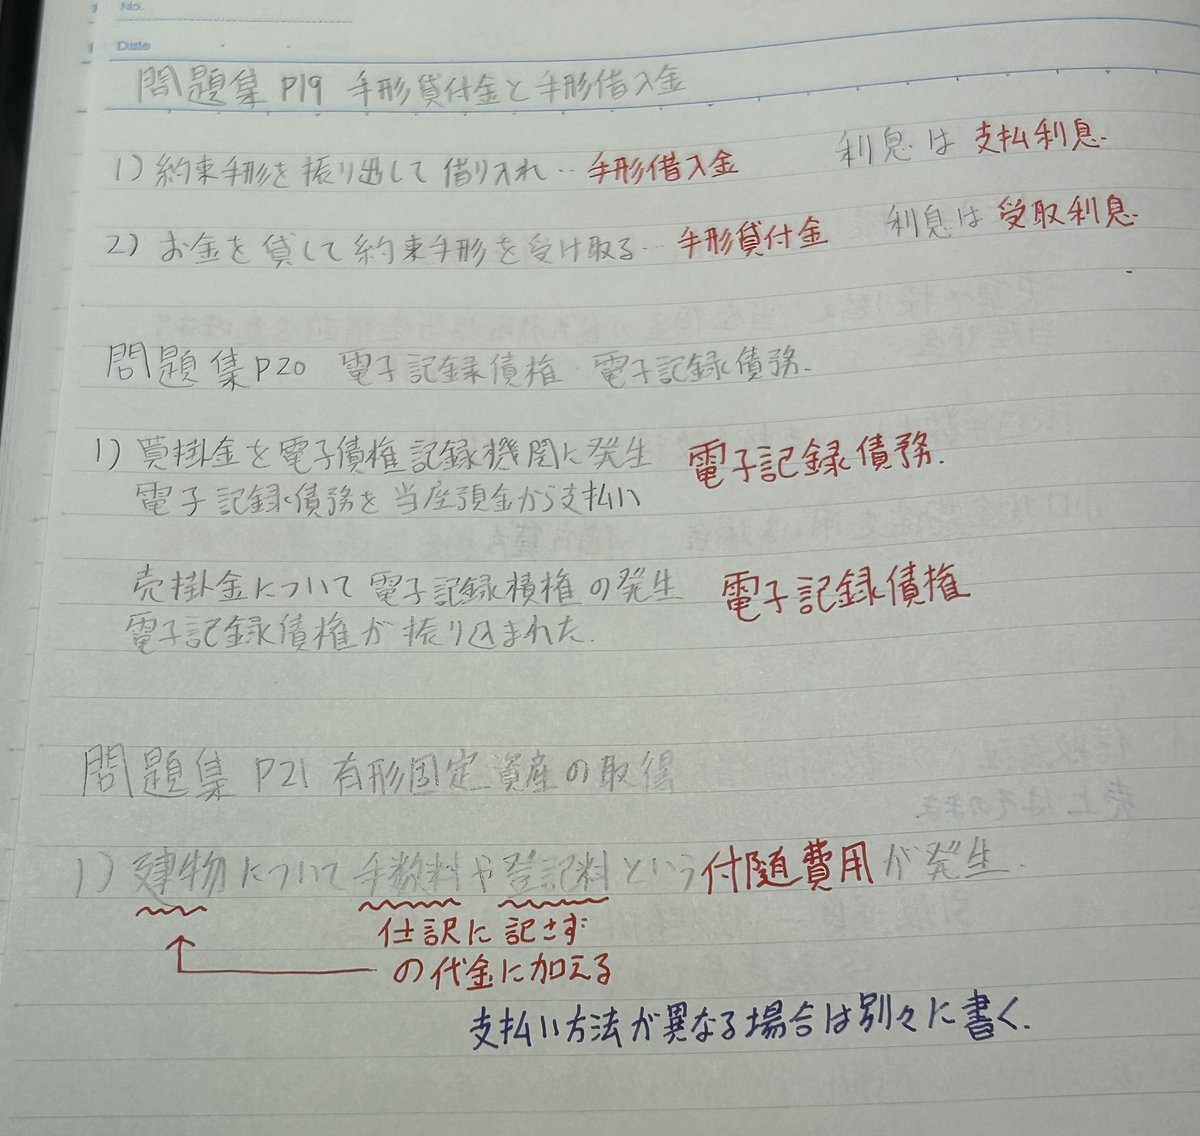 No.
Date
問題集 P19 手形貸付金と手形借入金
1) 約束手形を振り出して借り入れ‥手形借入金 利息は支払利息.
2) お金を貸して約束手形を受け取る‥手形貸付金 利息は受取利息.
問題集P20 電子記録債権・電子記録債務.
1) 買掛金を電子債権記録機関に発生 電子記録債務.
電子記録債務を当座預金から支払い
売掛金について電子記録積権の発生 電子記録債権
電子記録債権が振り込まれた.
問題集 P21 有形固定資産の取得
1) 建物について手数料や登記料という付随費用が発生.
仕訳に記さず
の代金に加える
支払い方法が異なる場合は別々に書く.